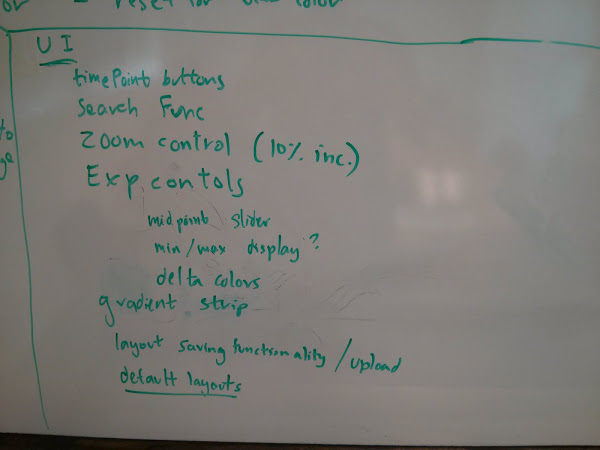 reset for
color
UI
timePoint buttons
Search Func
Zoom control (10% inc.)
Exp. contols
midpoint slider
min/max display?
delta colors
gradient strip
layout saving functionality /upload
default layouts